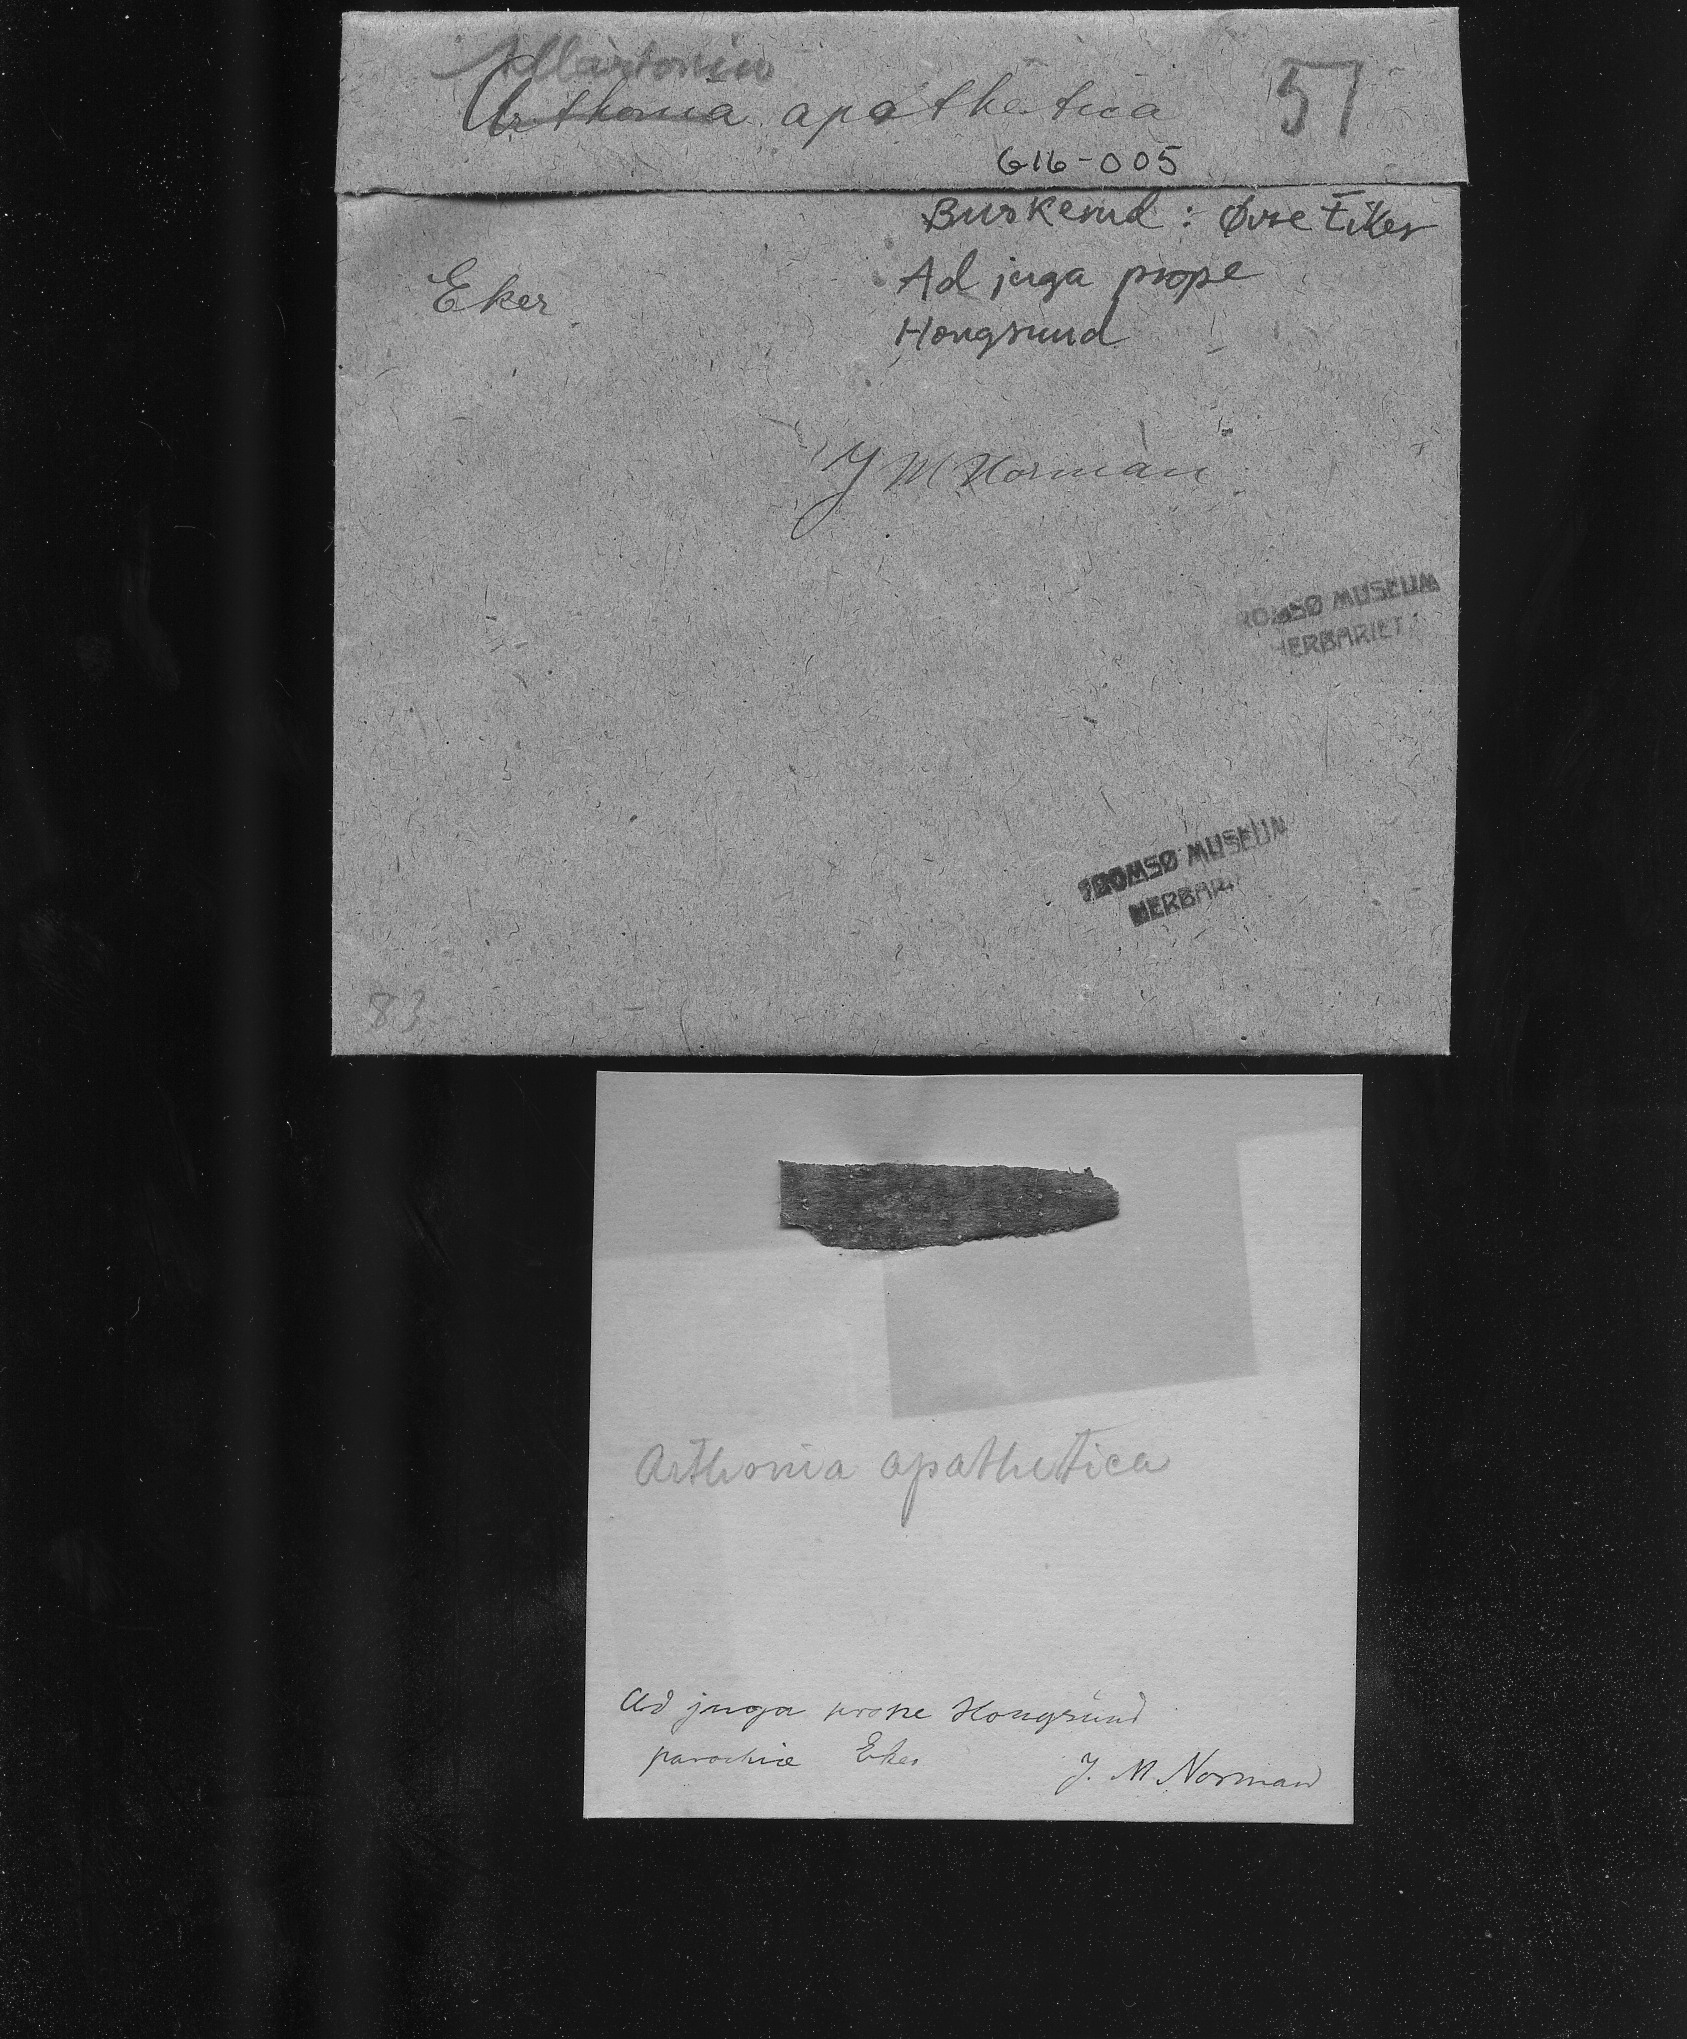 Allarthonia
Arthonia apathetica
57
616-005
Buskerud : Øvre Eiker
Eker
Ad juga prope
Hougsund
J M Norman
ROMSØ MUSEUM
HERBARIET
TROMSØ MUSEUM
HERBARI
83
Arthonia apathetica
Ad juga prope Hougsund
parochiæ Eker J. M Norman